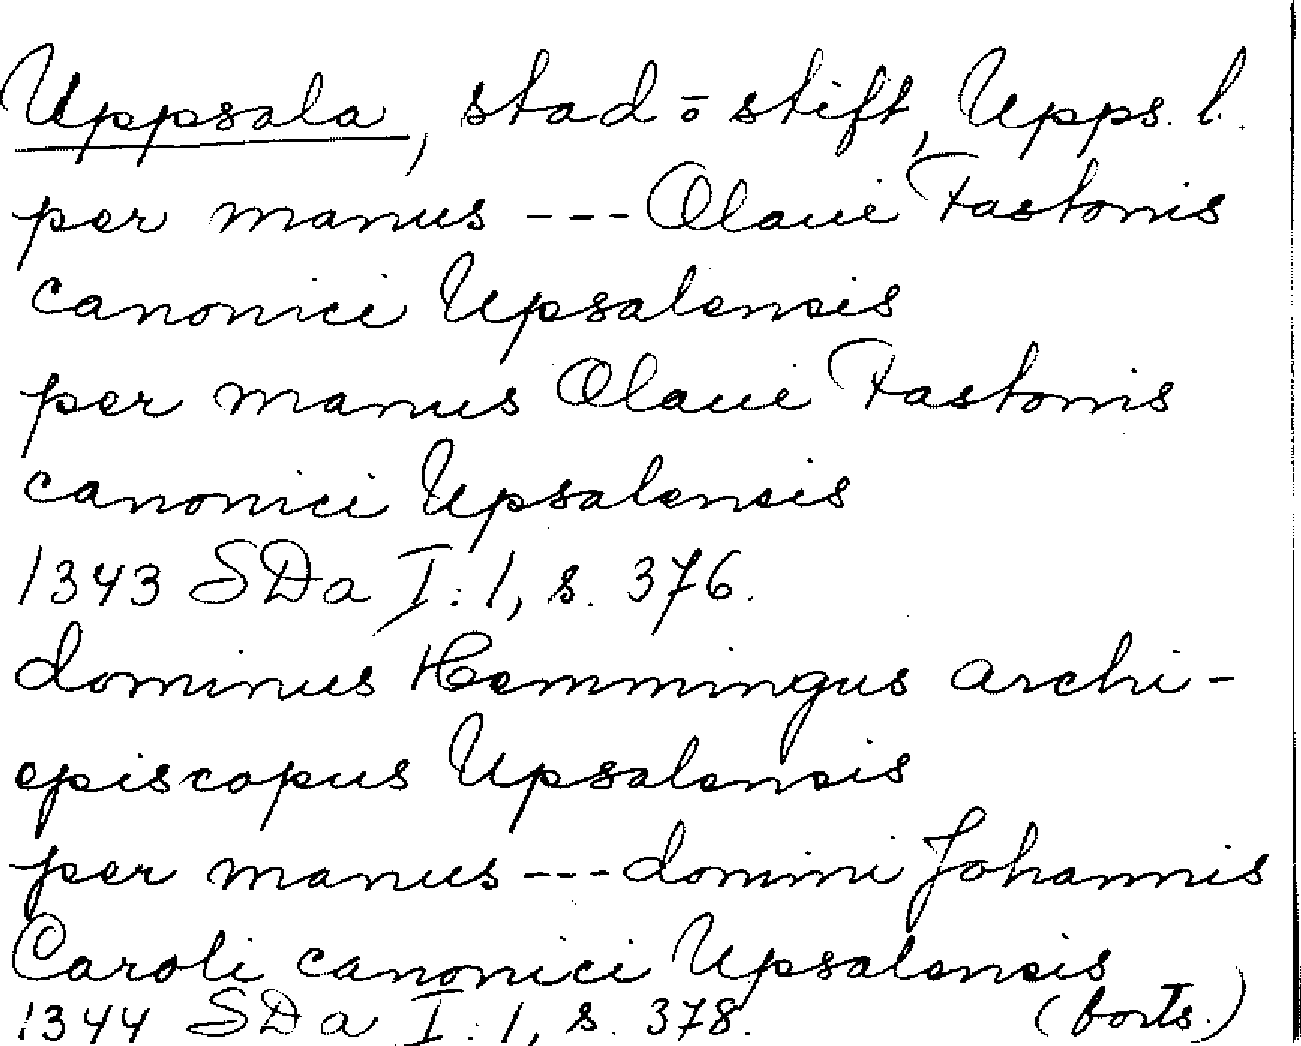 Uppsala, stad o stift, Upps. l.
per manus --- Olaui Fastonis
canonici Upsalensis
per manus Olaui Fastonis
canonici Upsalensis
1343 SDa I:1, s. 376.
dominus Hemmingus archi-
episcopus Upsalensis
per manus --- domini Johannis
Caroli canonici Upsalensis
1344 SDa I:1, s. 378. (forts.)